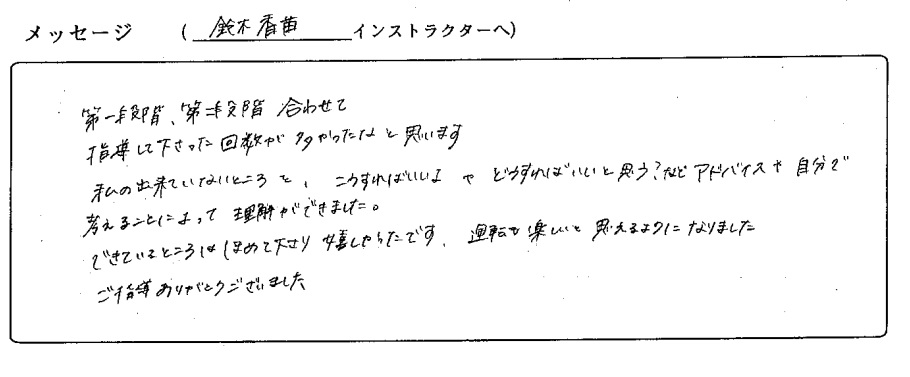 メッセージ （ 鈴木香苗 インストラクターへ）
第一段階、第二段階 合わせて
指導して下さった回数が多かったなと思います
私の出来ていないところを、こうすればいいよ や どうすればいいと思う？など アドバイスや自分で
考えることによって 理解ができました。
できているところはほめて下さり 嬉しかったです、運転を楽しいと思えるようになりました
ご指導ありがとうございました